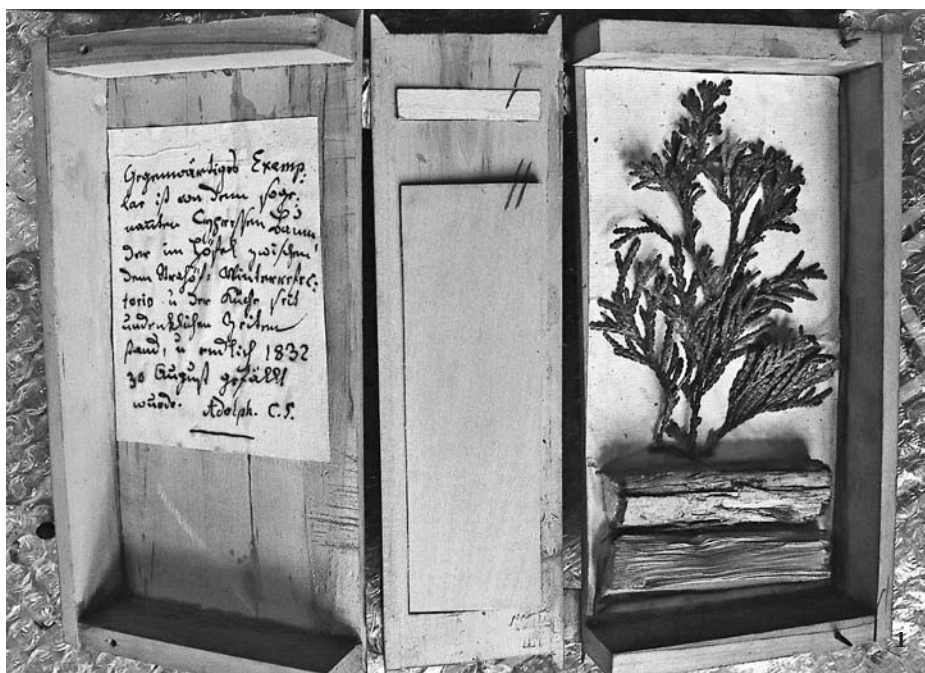 Gegenwärtiges Exemp:
lar ist von dem soge:
nannten Cypressen Baum
der im Höfel zwischen
dem Strahöf: Winterrefec:
torio u der Küche seit
undenklichen Zeiten
stand, u endlich 1832
30 August gefällt
wurde. Adolph. C. S.
I
II
1